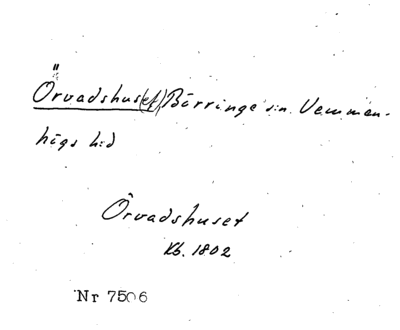 Ö
Örvadshus(et) Börringe s:n. Vemmen-
högs h:d
Örvadshuset
Kb. 1802
Nr 7506